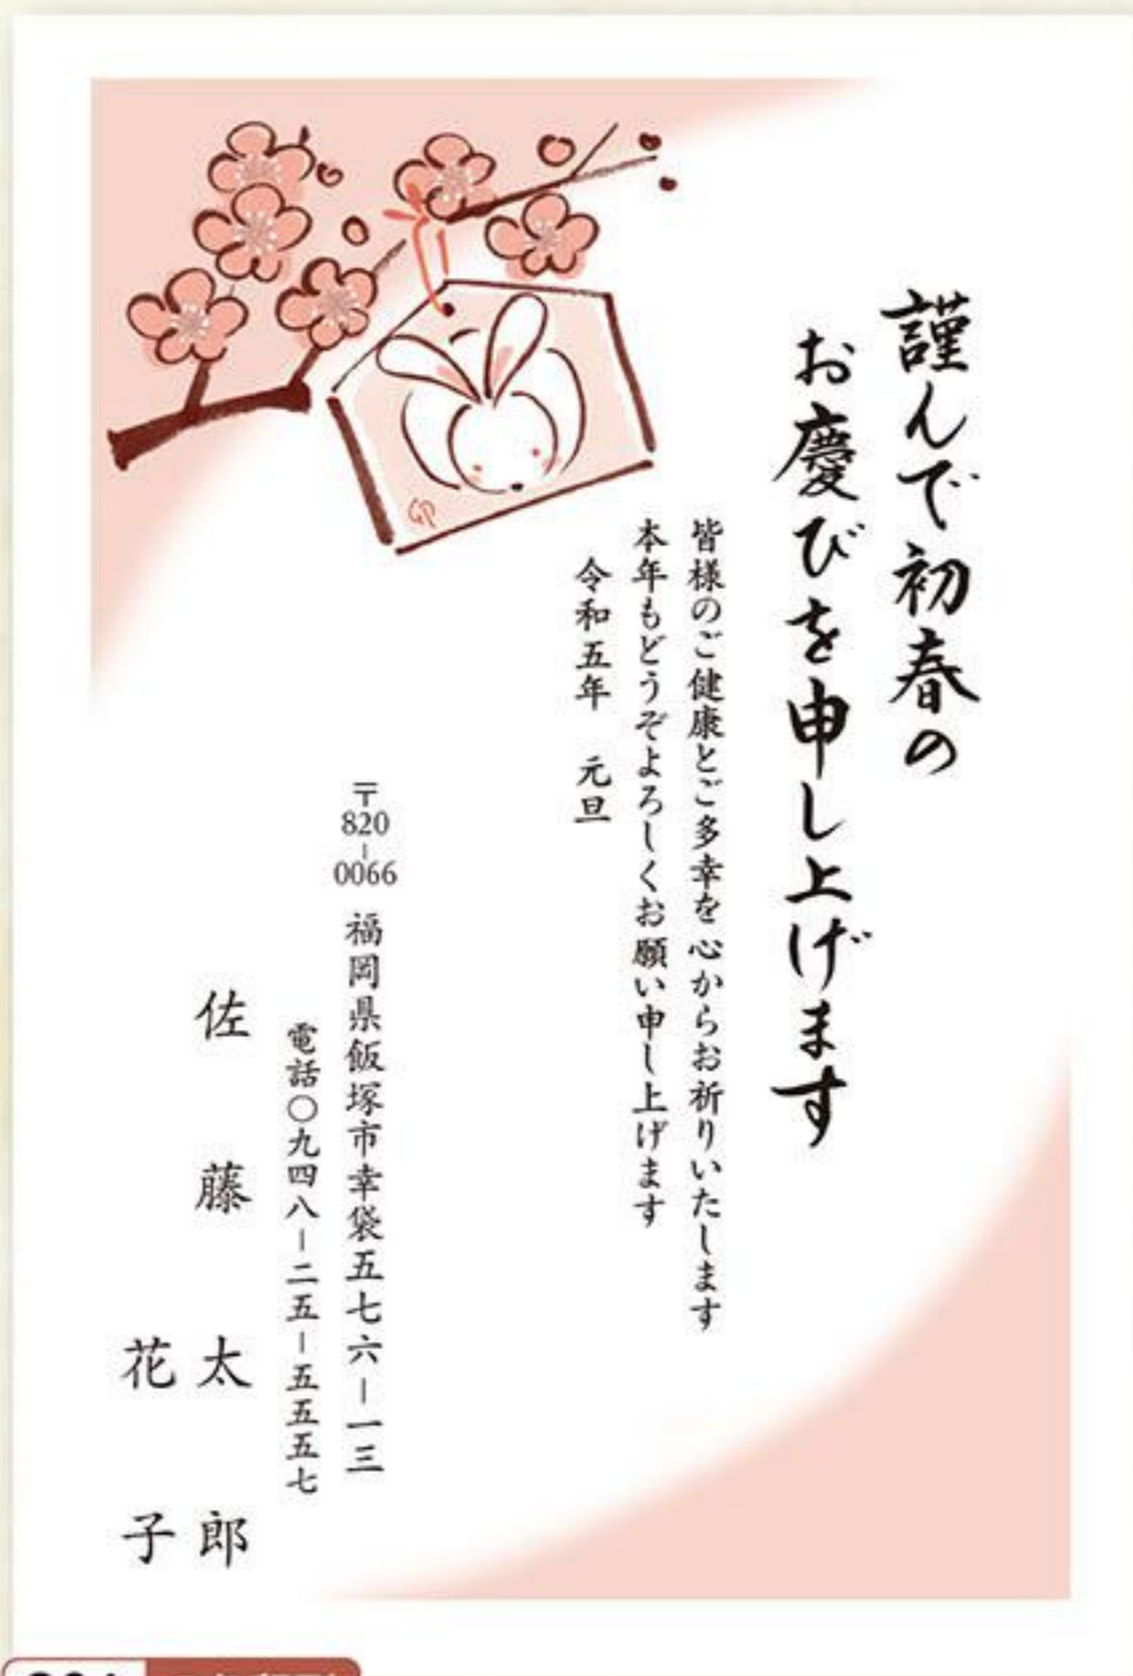 謹んで初春の
お慶びを申し上げます
皆様のご健康とご多幸を心からお祈りいたします
本年もどうぞよろしくお願い申し上げます
令和五年　元旦
〒820-0066　福岡県飯塚市幸袋五七六-一三
電話〇九四八-二五-五五五七
佐藤太郎
花子
GP